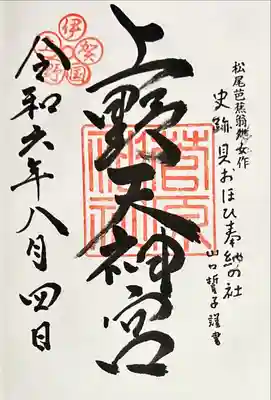 松尾芭蕉翁処女作
史跡貝おほひ奉納の社
山口誓子謹書
上野天神宮
伊賀国
上野
菅原神社
令和六年八月四日